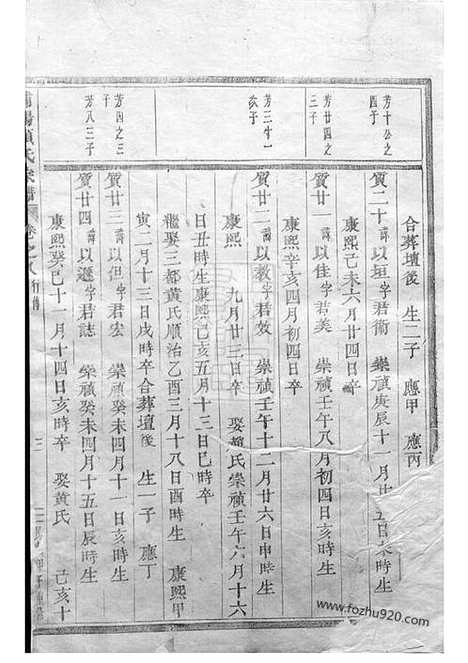 合葬壇後　生二子　應甲　應丙
芳十公之四子
質二十諱以垣字君衛　崇禎庚辰十一月廿五日未時生
康熙己未六月廿四日卒
芳廿四之三子
質廿一諱以佳字君美　崇禎壬午八月初四日亥時生
康熙辛亥四月初四日卒
芳三十一次子
質廿二諱以教字君效　崇禎壬午十二月廿六日申時生
康熙　九月廿三日卒　娶趙氏崇禎壬午六月十六
日丑時生康熙己亥五月十三日巳時卒
繼娶三都黃氏順治乙酉三月十八日酉時生　康熙甲
寅二月十三日戌時卒合葬壇後　生一子　應丁
芳四之三子
質廿三諱以但字君宏　崇禎癸未四月十一日亥時生
芳八三子
質廿四諱以遜字君誌　崇禎癸未四月十五日辰時生
康熙癸巳十一月十四日亥時卒　娶黃氏　己亥十
氏宗譜　卷之八　行傳　三
www.fozhu920.com